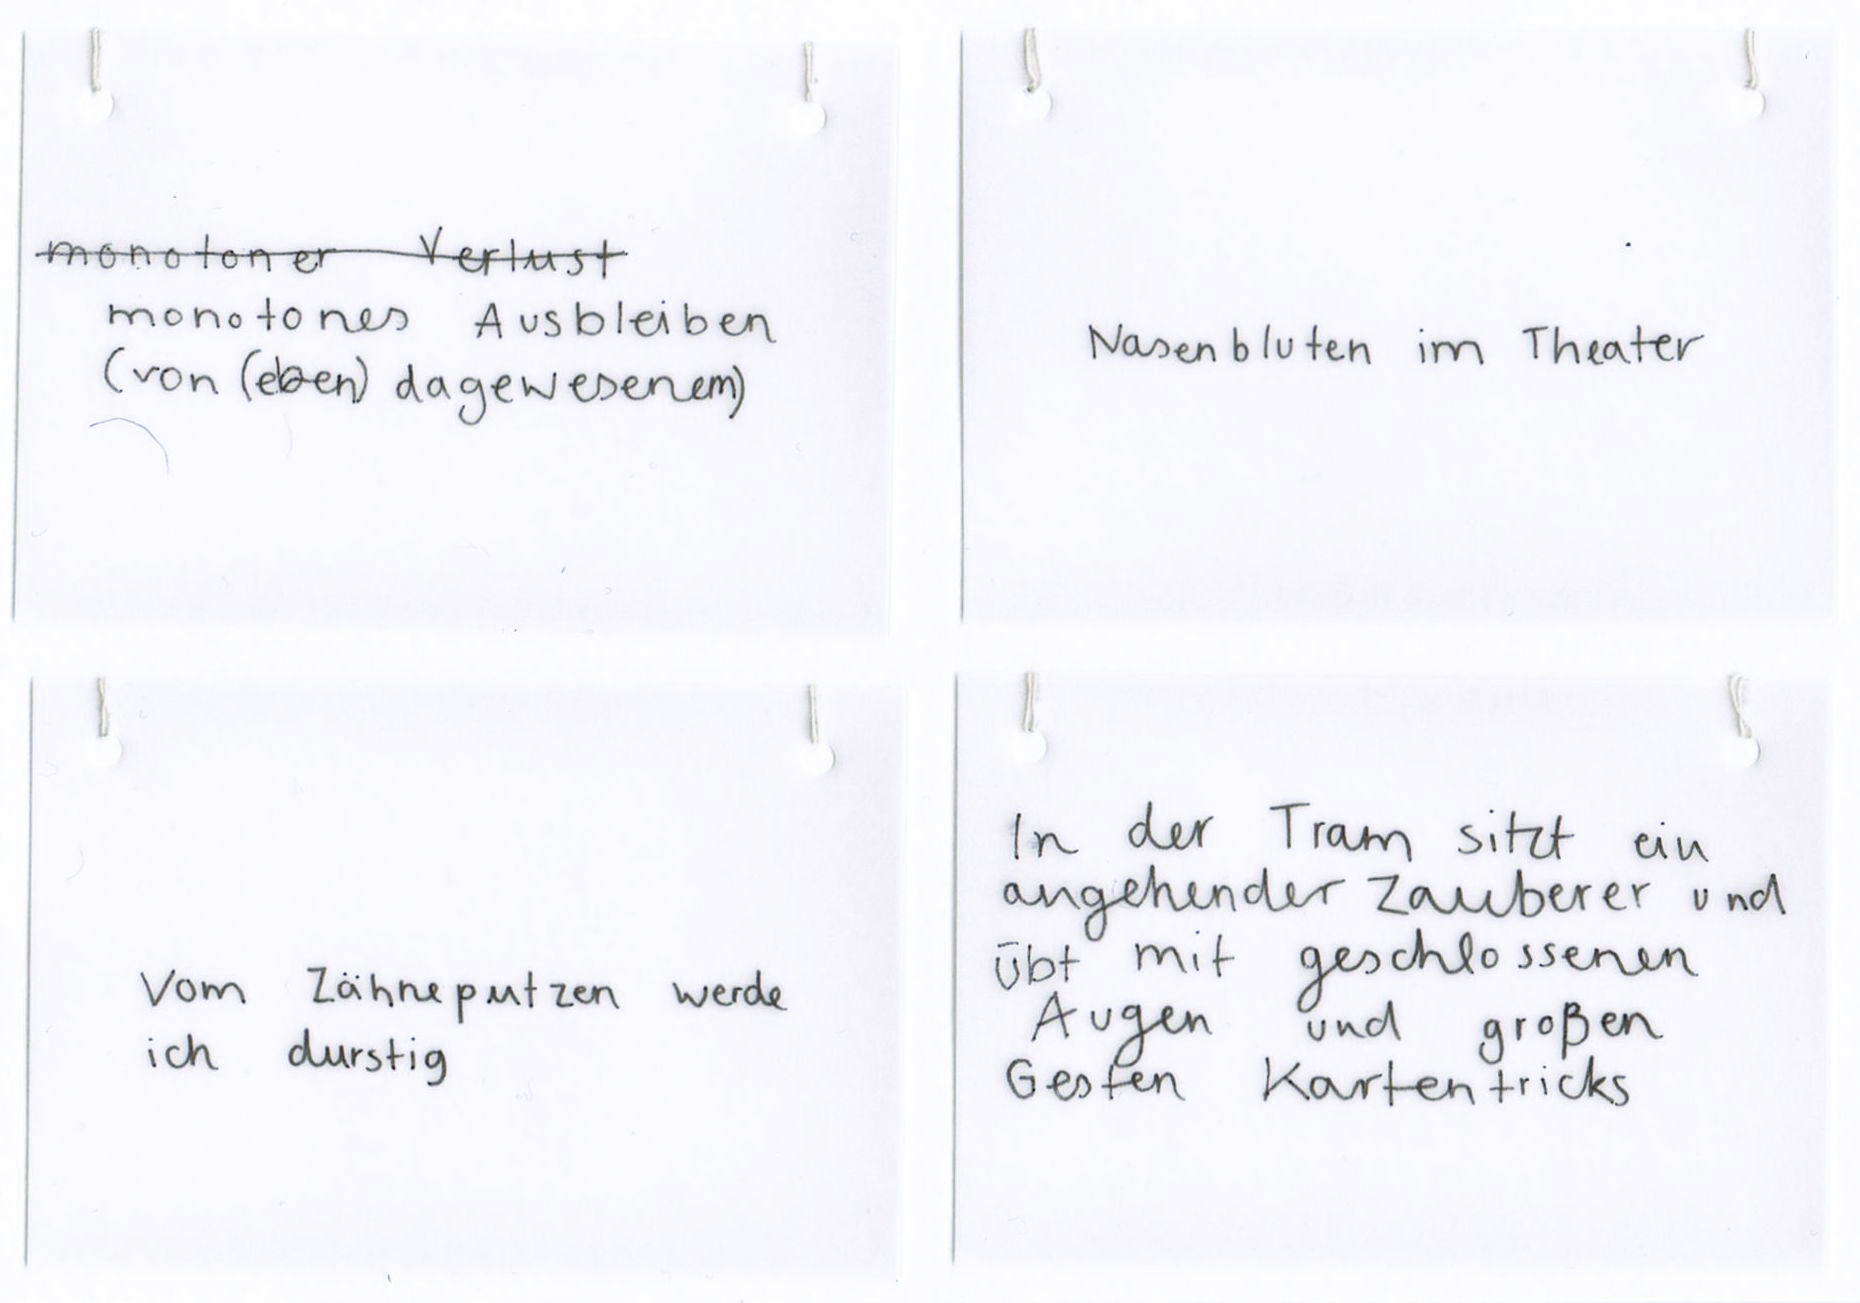 monotoner Verlust
monotones Ausbleiben
(von (eben) dagewesenem)
Nasenbluten im Theater
Vom Zähneputzen werde
ich durstig
In der Tram sitzt ein
angehender Zauberer und
übt mit geschlossenen
Augen und großen
Gesten Kartentricks